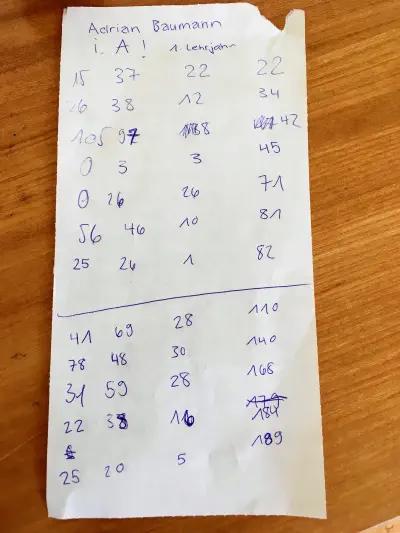 Adrian Baumann
i. A! 1. Lehrjahr
15 37 22 22
26 38 12 34
105 97 8 42
0 3 3 45
0 26 26 71
56 46 10 81
25 26 1 82
41 69 28 110
78 48 30 140
31 59 28 168
22 38 16 184
25 20 5 189